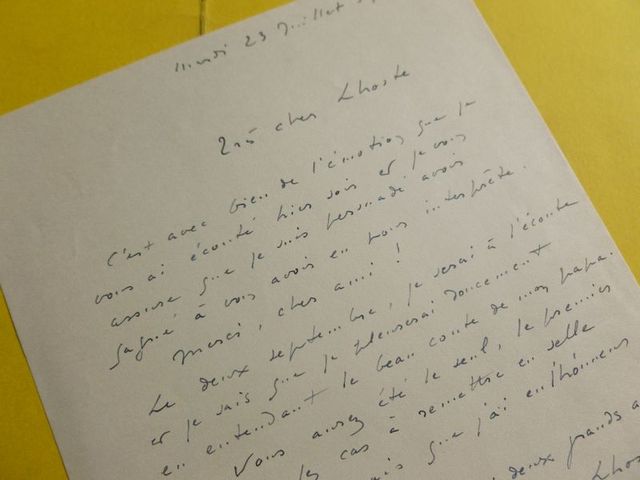 Mardi 23 Juillet
Très cher Lhoste
C'est avec bien de l'émotion que je
vous ai écouté hier soir et je vous
assure que je suis persuadé avoir
gagné à vous avoir eu pour interprète.
Merci, cher ami !
Le deux septembre, je serai à l'écoute
et je sais que je pleurerai doucement
en entendant le beau conte de mon papa.
Vous aurez été le seul, le premier
cas à remettre en selle
que j'ai en l'honneur
deux grands a
Lhos